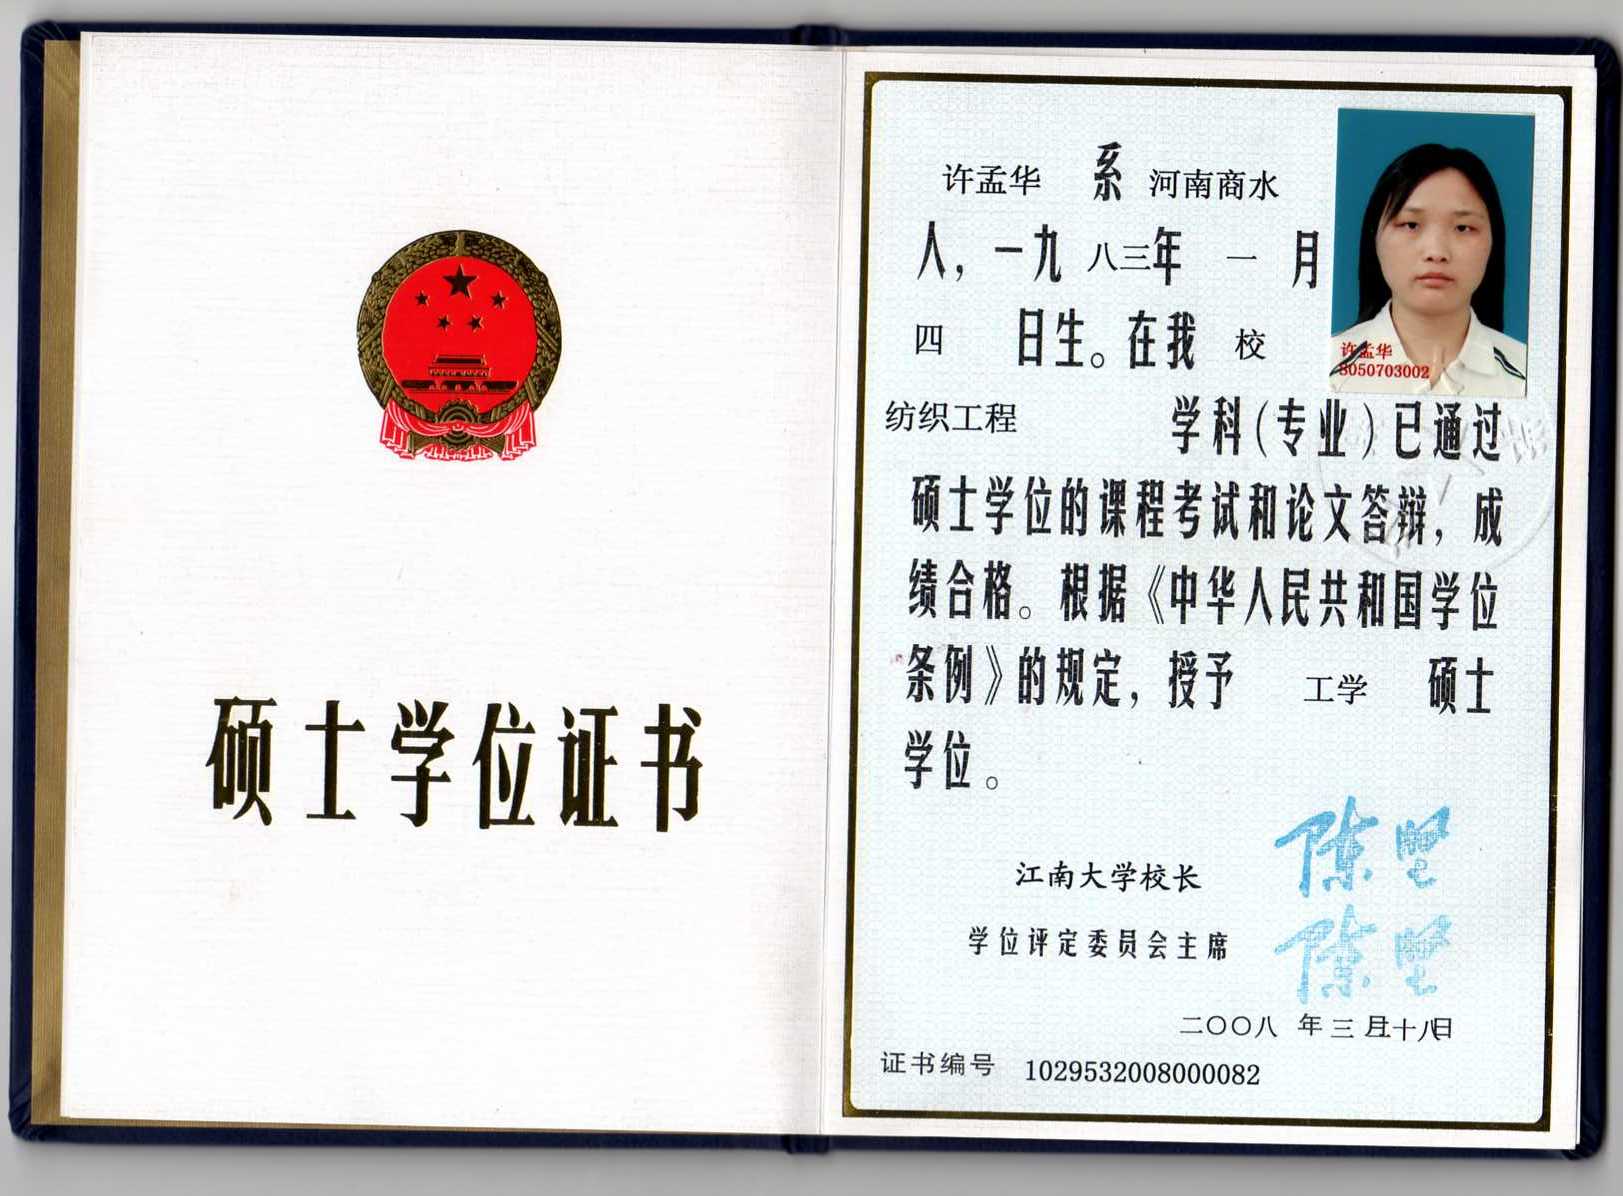 硕士学位证书
许孟华 系 河南商水
人，一九八三年 一 月
四 日生。在我 校
许孟华
8050703002
纺织工程 学科（专业）已通过
硕士学位的课程考试和论文答辩，成
绩合格。根据《中华人民共和国学位
条例》的规定，授予 工学 硕士
学位。
江南大学校长 陈坚
学位评定委员会主席 陈坚
二〇〇八 年 三 月 十八日
证书编号 1029532008000082